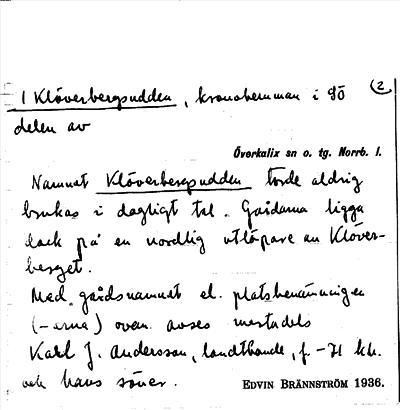 1 Klöverbergsudden, kronohemman i sö (2
delen av
Överkalix sn o. tg. Norrb. l.
Namnet Klöverbergsudden torde aldrig
brukas i dagligt tal. Gårdarna ligga
dock på en nordlig utlöpare av Klöver-
berget.
Med gårdsnamnet el. platsbenämningen
(-arna) ovan avses mestadels
Karl J. Andersson, landtbonde, f. -71 kh.
och hans söner.
EDVIN BRÄNNSTRÖM 1936.